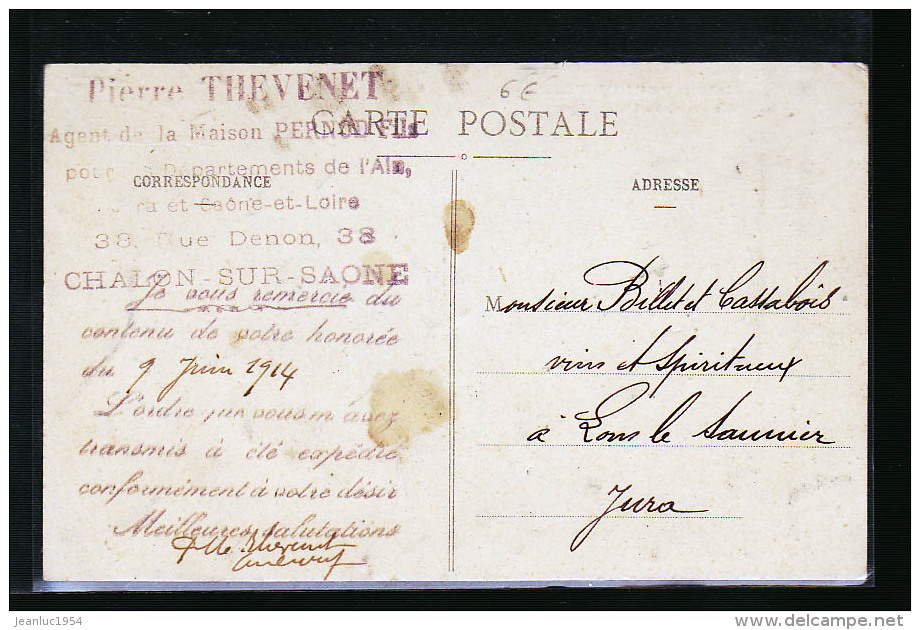 6€
Pierre THEVENET
Agent de la Maison PERNOD Fils
CARTE POSTALE
pour les Départements de l'Ain,
CORRESPONDANCE
Jura et Saône-et-Loire
38, Rue Denon, 38
CHALON-SUR-SAONE
Je vous remercie du
contenu de votre honorée
du 9 Juin 1914
L'ordre que vous m'avez
transmis à été expédié
conformément à votre désir
Meilleures salutations
ADRESSE
Monsieur Billet et Cassabois
vins et Spiritueux
à Lons le Saunier
Jura
jeanluc1954
delcampe.net